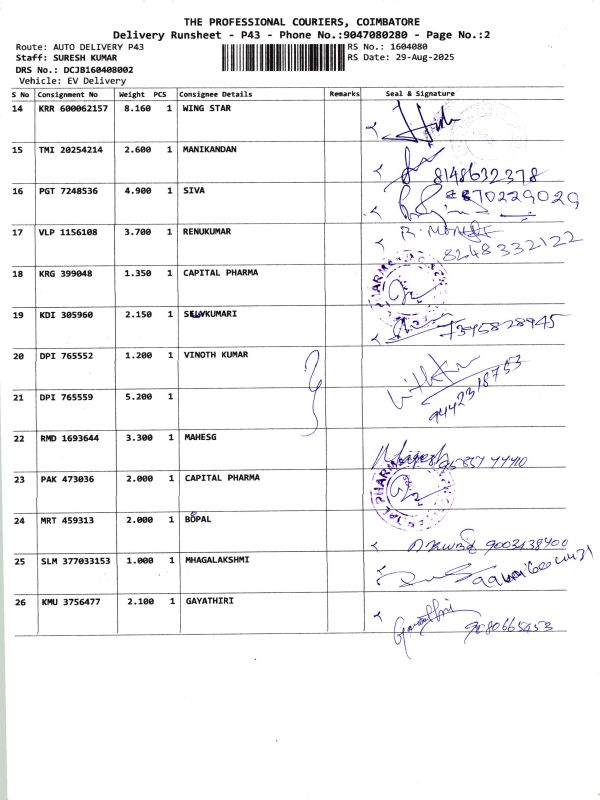 THE PROFESSIONAL COURIERS, COIMBATORE
Delivery Runsheet - P43 - Phone No.:9047080280 - Page No.:2
Route: AUTO DELIVERY P43 RS No.: 1604080
Staff: SURESH KUMAR RS Date: 29-Aug-2025
DRS No.: DCJB160408002
Vehicle: EV Delivery
S No Consignment No Weight PCS Consignee Details Remarks Seal & Signature
14 KRR 600062157 8.160 1 WING STAR
15 TMI 20254214 2.600 1 MANIKANDAN 8148632378
16 PGT 7248536 4.900 1 SIVA 8870229029
17 VLP 1156108 3.700 1 RENUKUMAR 8248332122
18 KRG 399048 1.350 1 CAPITAL PHARMA
19 KDI 305960 2.150 1 SELVKUMARI 7395828945
20 DPI 765552 1.200 1 VINOTH KUMAR
21 DPI 765559 5.200 1 9442318753
22 RMD 1693644 3.300 1 MAHESG
23 PAK 473036 2.000 1 CAPITAL PHARMA
24 MRT 459313 2.000 1 BOPAL 9003438400
25 SLM 377033153 1.000 1 MHAGALAKSHMI
26 KMU 3756477 2.100 1 GAYATHIRI 9280665453